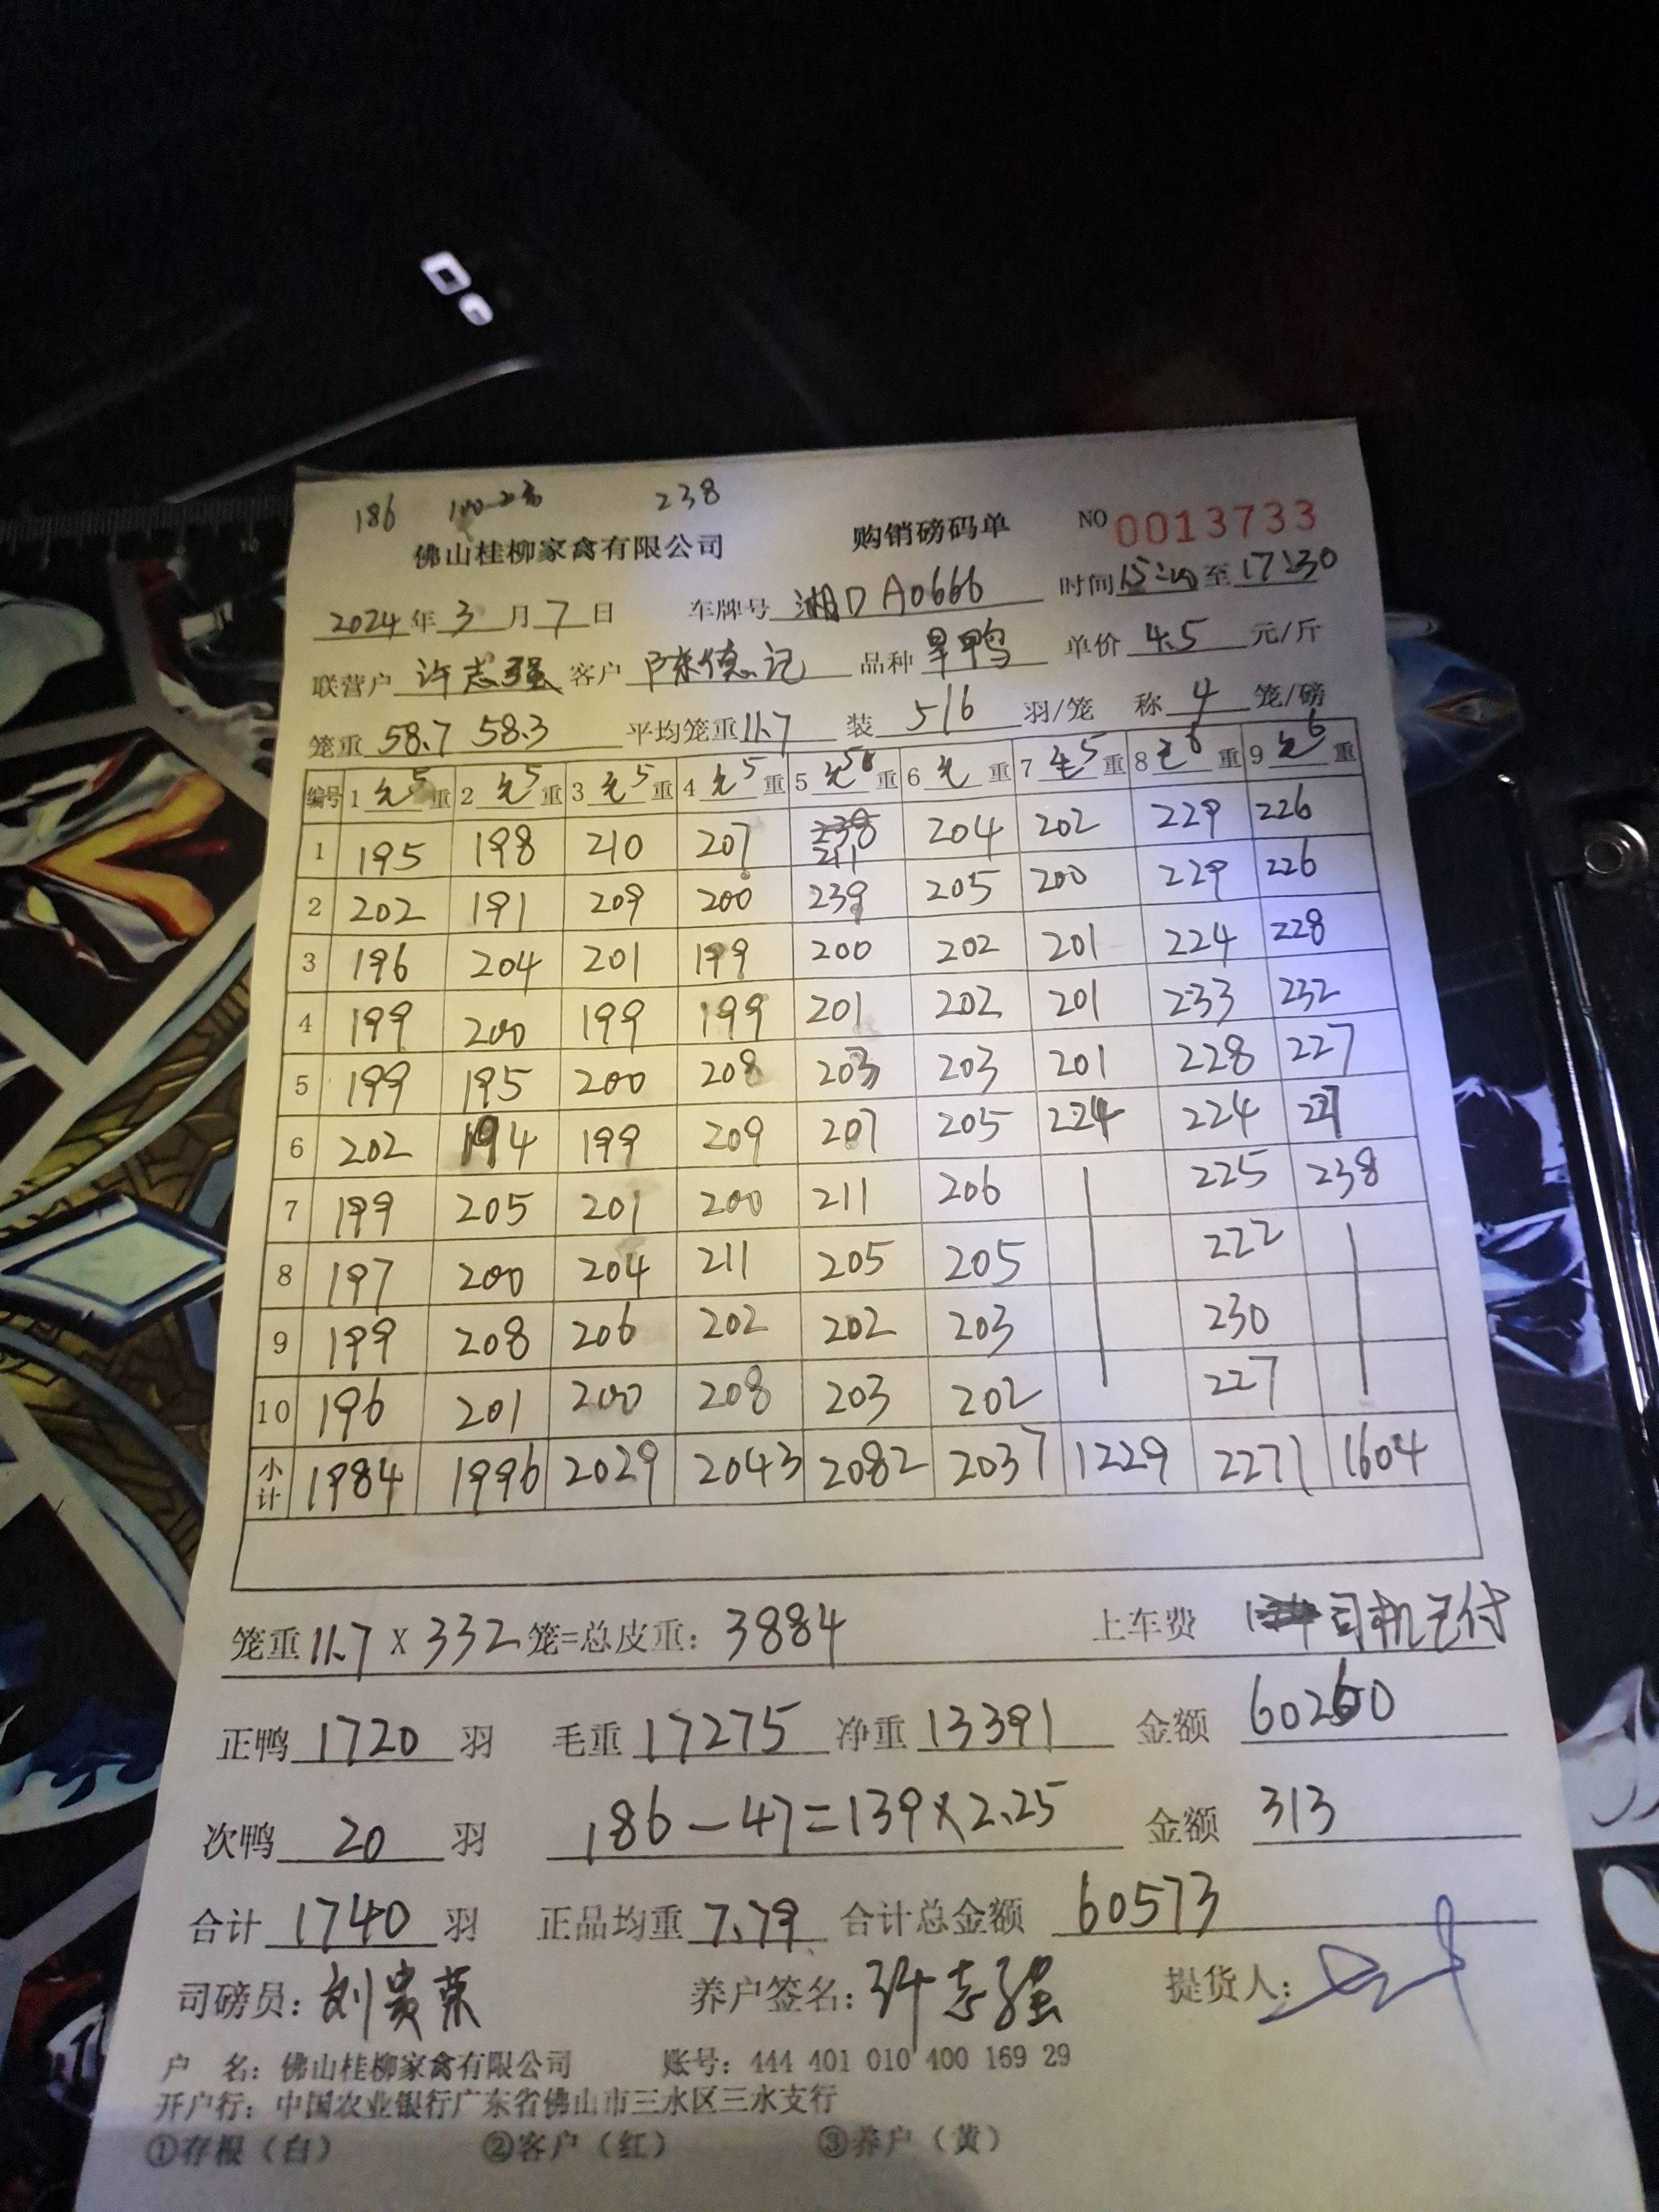 186 238
佛山桂柳家禽有限公司 购销磅码单 NO 0013733
2024年3月7日 车牌号 湘D A0666 时间 至17:30
联营户 许志强 客户 陈德记 品种 旱鸭 单价 4.5 元/斤
笼重 58.7 58.3 平均笼重 11.7 装 5/6 羽/笼 称 4 笼/磅
编号 1 毛5重 2 毛5重 3 毛5重 4 毛5重 5 毛56重 6 毛 重 7 毛5重 8 毛6重 9 毛6重
1 195 198 210 207 211 204 202 229 226
2 202 191 209 200 239 205 200 229 226
3 196 204 201 199 200 202 201 224 228
4 199 200 199 199 201 202 201 233 232
5 199 195 200 208 203 203 201 228 227
6 202 194 199 209 207 205 224 224 227
7 199 205 201 200 211 206 225 238
8 197 200 204 211 205 205 222
9 199 208 206 202 202 203 230
10 196 201 200 208 203 202 227
小计 1984 1996 2029 2043 2082 2037 1229 2271 1604
笼重 11.7 × 332 笼=总皮重: 3884 上车费 司机已付
正鸭 1720 羽 毛重 17275 净重 13391 金额 60260
次鸭 20 羽 186-47=139×2.25 金额 313
合计 1740 羽 正品均重 7.79 合计总金额 60573
司磅员: 刘贵荣 养户签名: 许志强 提货人:
户 名: 佛山桂柳家禽有限公司 账号: 444 401 010 400 169 29
开户行: 中国农业银行广东省佛山市三水区三水支行
①存根（白） ②客户（红） ③养户（黄）